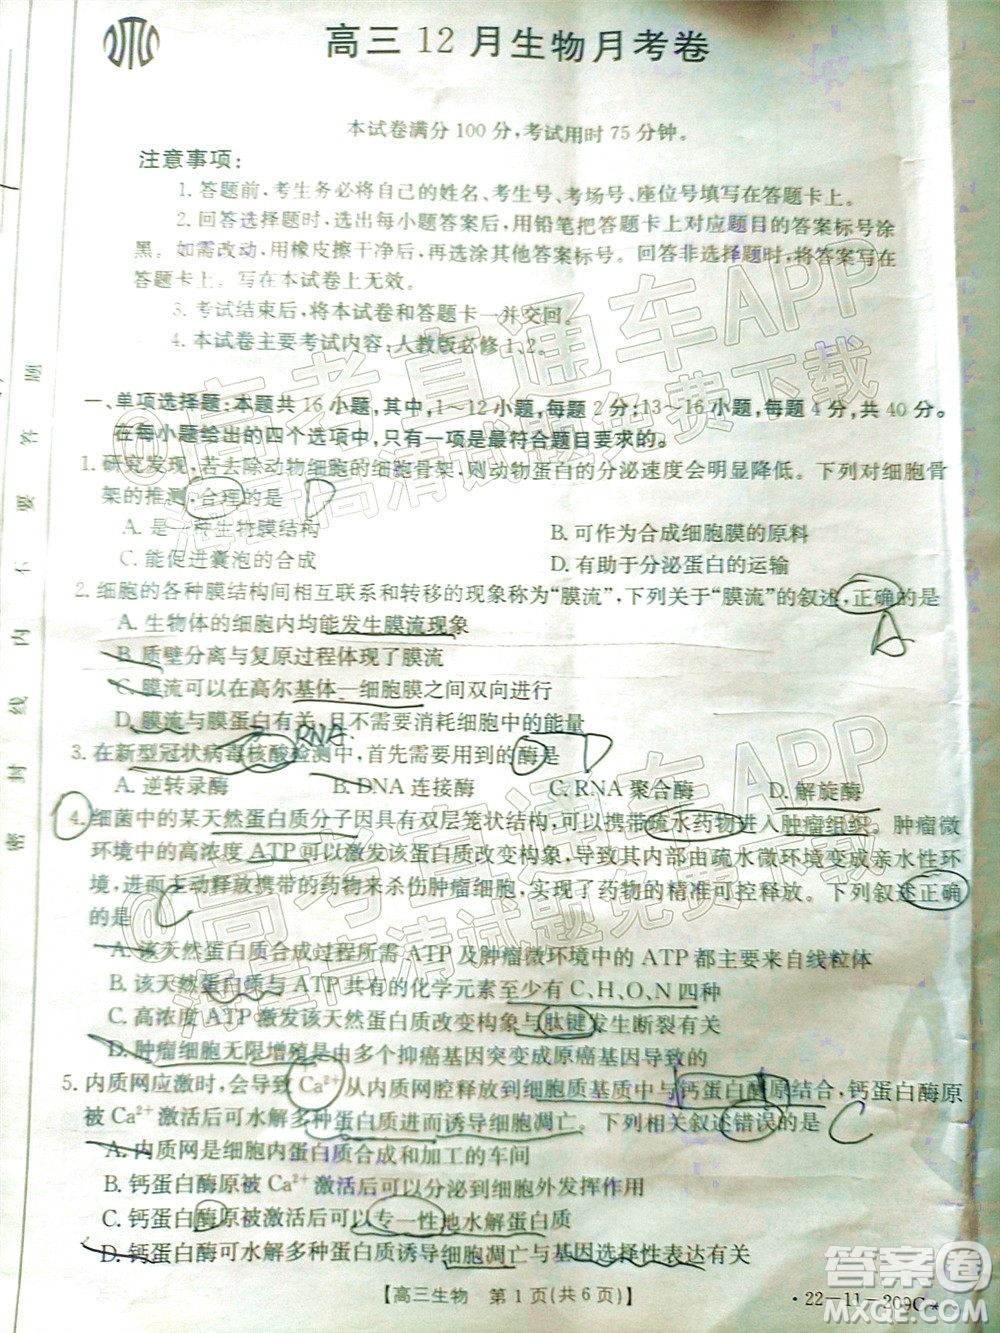 高三12月生物月考卷
本试卷满分100分,考试用时75分钟。
注意事项:
1. 答题前,考生务必将自己的姓名、考生号、考场号、座位号填写在答题卡上。
2. 回答选择题时,选出每小题答案后,用铅笔把答题卡上对应题目的答案标号涂
黑。如需改动,用橡皮擦干净后,再选涂其他答案标号。回答非选择题时,将答案写在
答题卡上。写在本试卷上无效。
3. 考试结束后,将本试卷和答题卡一并交回。
4. 本试卷主要考试内容:人教版必修1、2。
一、单项选择题:本题共16小题,其中,1~12小题,每题2分;13~16小题,每题4分,共40分。
在每小题给出的四个选项中,只有一项是最符合题意的。
1. 研究发现,若去除动物细胞的细胞骨架,则动物蛋白的分泌速度会明显降低。下列对细胞骨
架的推测,合理的是 D
A. 是一种生物膜结构
B. 可作为合成细胞膜的原料
C. 能促进囊泡的合成
D. 有助于分泌蛋白的运输
2. 细胞的各种膜结构间相互联系和转移的现象称为“膜流”,下列关于“膜流”的叙述,正确的是
A
A. 生物体的细胞内均能发生膜流现象
B. 质壁分离与复原过程体现了膜流
C. 膜流可以在高尔基体—细胞膜之间双向进行
D. 膜流与膜蛋白有关,且不需要消耗细胞中的能量
RNA
3. 在新型冠状病毒核酸检测中,首先需要用到的酶是 D
A. 逆转录酶 B. DNA连接酶 C. RNA聚合酶 D. 解旋酶
4. 细菌中的某天然蛋白质分子因具有双层笼状结构,可以携带疏水药物进入肿瘤组织。肿瘤微
环境中的高浓度ATP可以激发该蛋白质改变构象,导致其内部由疏水微环境变成亲水性环
境,进而主动释放携带的药物来杀伤肿瘤细胞,实现了药物的精准可控释放。下列叙述正确
的是 C
A. 该天然蛋白质合成过程所需ATP及肿瘤微环境中的ATP都主要来自线粒体
B. 该天然蛋白质与ATP共有的化学元素至少有C、H、O、N四种
C. 高浓度ATP激发该天然蛋白质改变构象与肽键发生断裂有关
D. 肿瘤细胞无限增殖是由于抑癌基因突变成原癌基因导致的
5. 内质网应激时,会导致Ca²⁺从内质网腔释放到细胞质基质中与钙蛋白酶原结合,钙蛋白酶原
被Ca²⁺激活后可水解多种蛋白质进而诱导细胞凋亡。下列相关叙述错误的是 C
A. 内质网是细胞内蛋白质合成和加工的车间
B. 钙蛋白酶原被Ca²⁺激活后可以通过分泌到胞外发挥作用
C. 钙蛋白酶原被激活后可以专一性地水解蛋白质
D. 钙蛋白酶可水解多种蛋白质诱导细胞凋亡与基因选择性表达有关
【高三生物 第1页(共6页)】
·22-11-209C·
密 封 线 内 不 要 答 题
@高考直通车APP
海量高清试题免费下载
@高考直通车APP
海量高清试题免费下载
答案圈
MXQE.COM